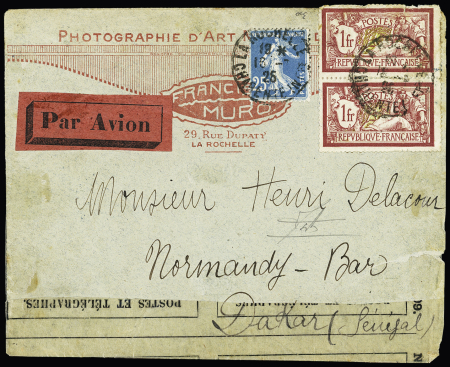 PHOTOGRAPHIE D'ART
FRANCK
MURO
29, RUE DUPATY
LA ROCHELLE
Par Avion
25
POSTES
1fr
REPVBLIQUE FRANÇAISE
1fr
REPVBLIQUE FRANÇAISE
Monsieur Henri Delacour
Normandy-Bar
Dakar (Sénégal)
POSTES ET TÉLÉGRAPHES.